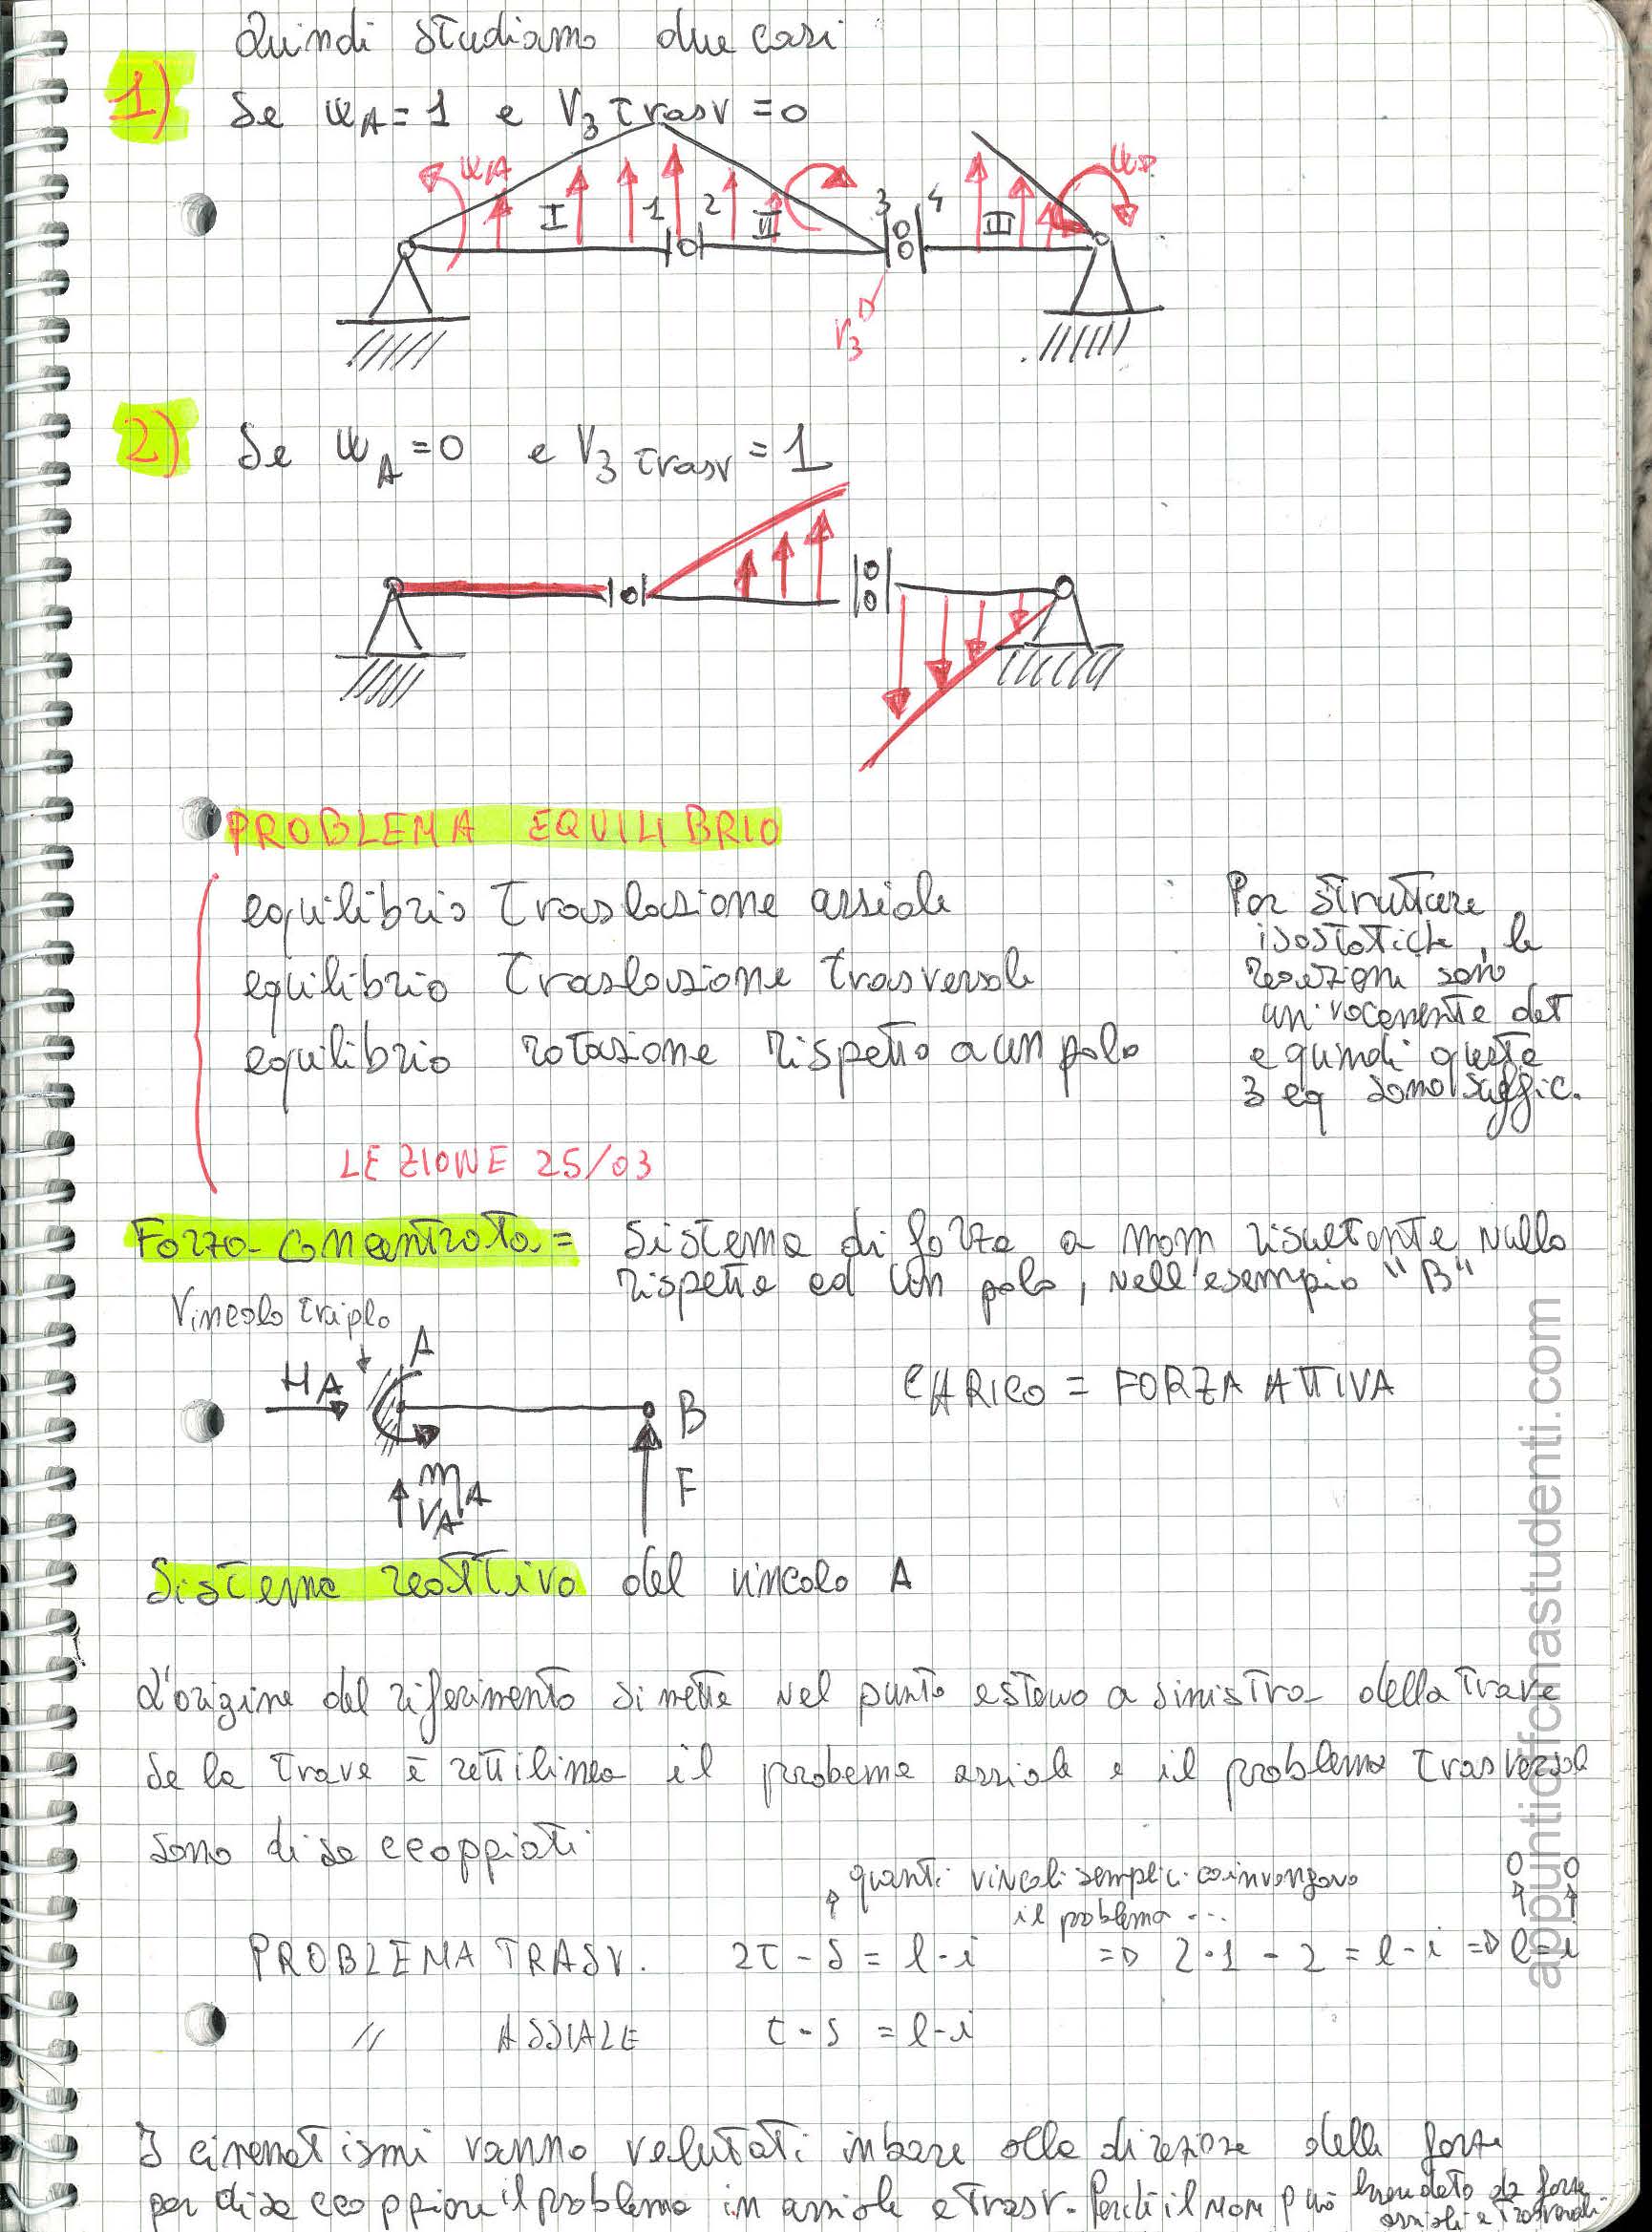 Quindi studiamo due casi
1) Se ωA = 1 e V3 trasv = 0
ωA
I 1 2 II 3 4 III
V3
2) Se ωA = 0 e V3 trasv = 1
PROBLEMA EQUILIBRIO
equilibrio traslazione assiale
equilibrio traslazione trasversale
equilibrio rotazione rispetto a un polo
Per strutture
isostatiche, le
reazioni sono
univocamente det
e quindi queste
3 eq sono suffic.
LEZIONE 25/03
Forza concentrata = Sistema di forze a mom risultante nullo
rispetto ad un polo, nell'esempio "B"
Vincolo triplo
A
HA
B
CARICO = FORZA ATTIVA
mA
VA
F
Sistema reattivo del vincolo A
L'origine del riferimento si mette nel punto estemo a sinistra della trave
Se la trave è rettilinea il probema assiale e il problema trasversale
sono disaccoppiati
quanti vincoli semplici coinvongono
il problema ...
0 0
PROBLEMA TRASV. 2t - s = l - i => 2·1 - 2 = l - i => l = i
// ASSIALE t - s = l - i
I cinematismi vanno valutati in base alla direzione delle forze
per disaccoppiare il problema in assiale e trasv. Perchè il mom può
forze
assiali e trasversali
appuntidificnastudenti.com